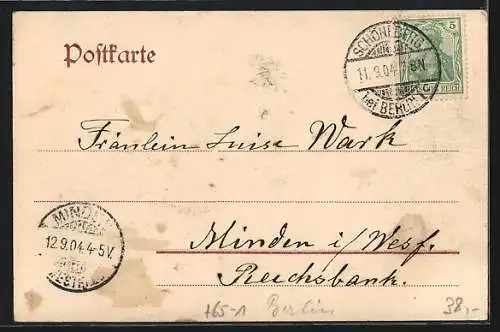 Postkarte
SCHÖNEBERG
11.9.04. 7-8V.
bei BERLIN
5
REICH
Fräulein Luise Wark
MINDEN
12.9.04.4-5V.
Minden i/Westf.
Reichsbank.
+65-1 Berlin 38,-